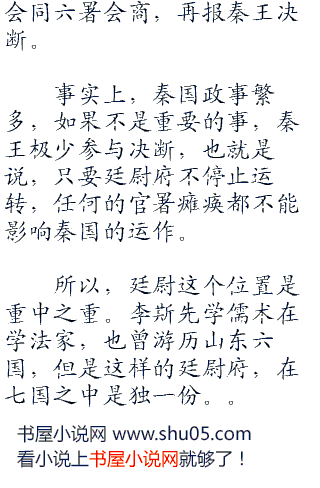 会同六署会商，再报秦王决
断。
事实上，秦国政事繁
多，如果不是重要的事，秦
王极少参与决断，也就是
说，只要廷尉府不停止运
转，任何的官署瘫痪都不能
影响秦国的运作。
所以，廷尉这个位置是
重中之重。李斯先学儒术在
学法家，也曾游历山东六
国，但是这样的廷尉府，在
七国之中是独一份。。
书屋小说网 www.shu05.com
看小说上书屋小说网就够了！